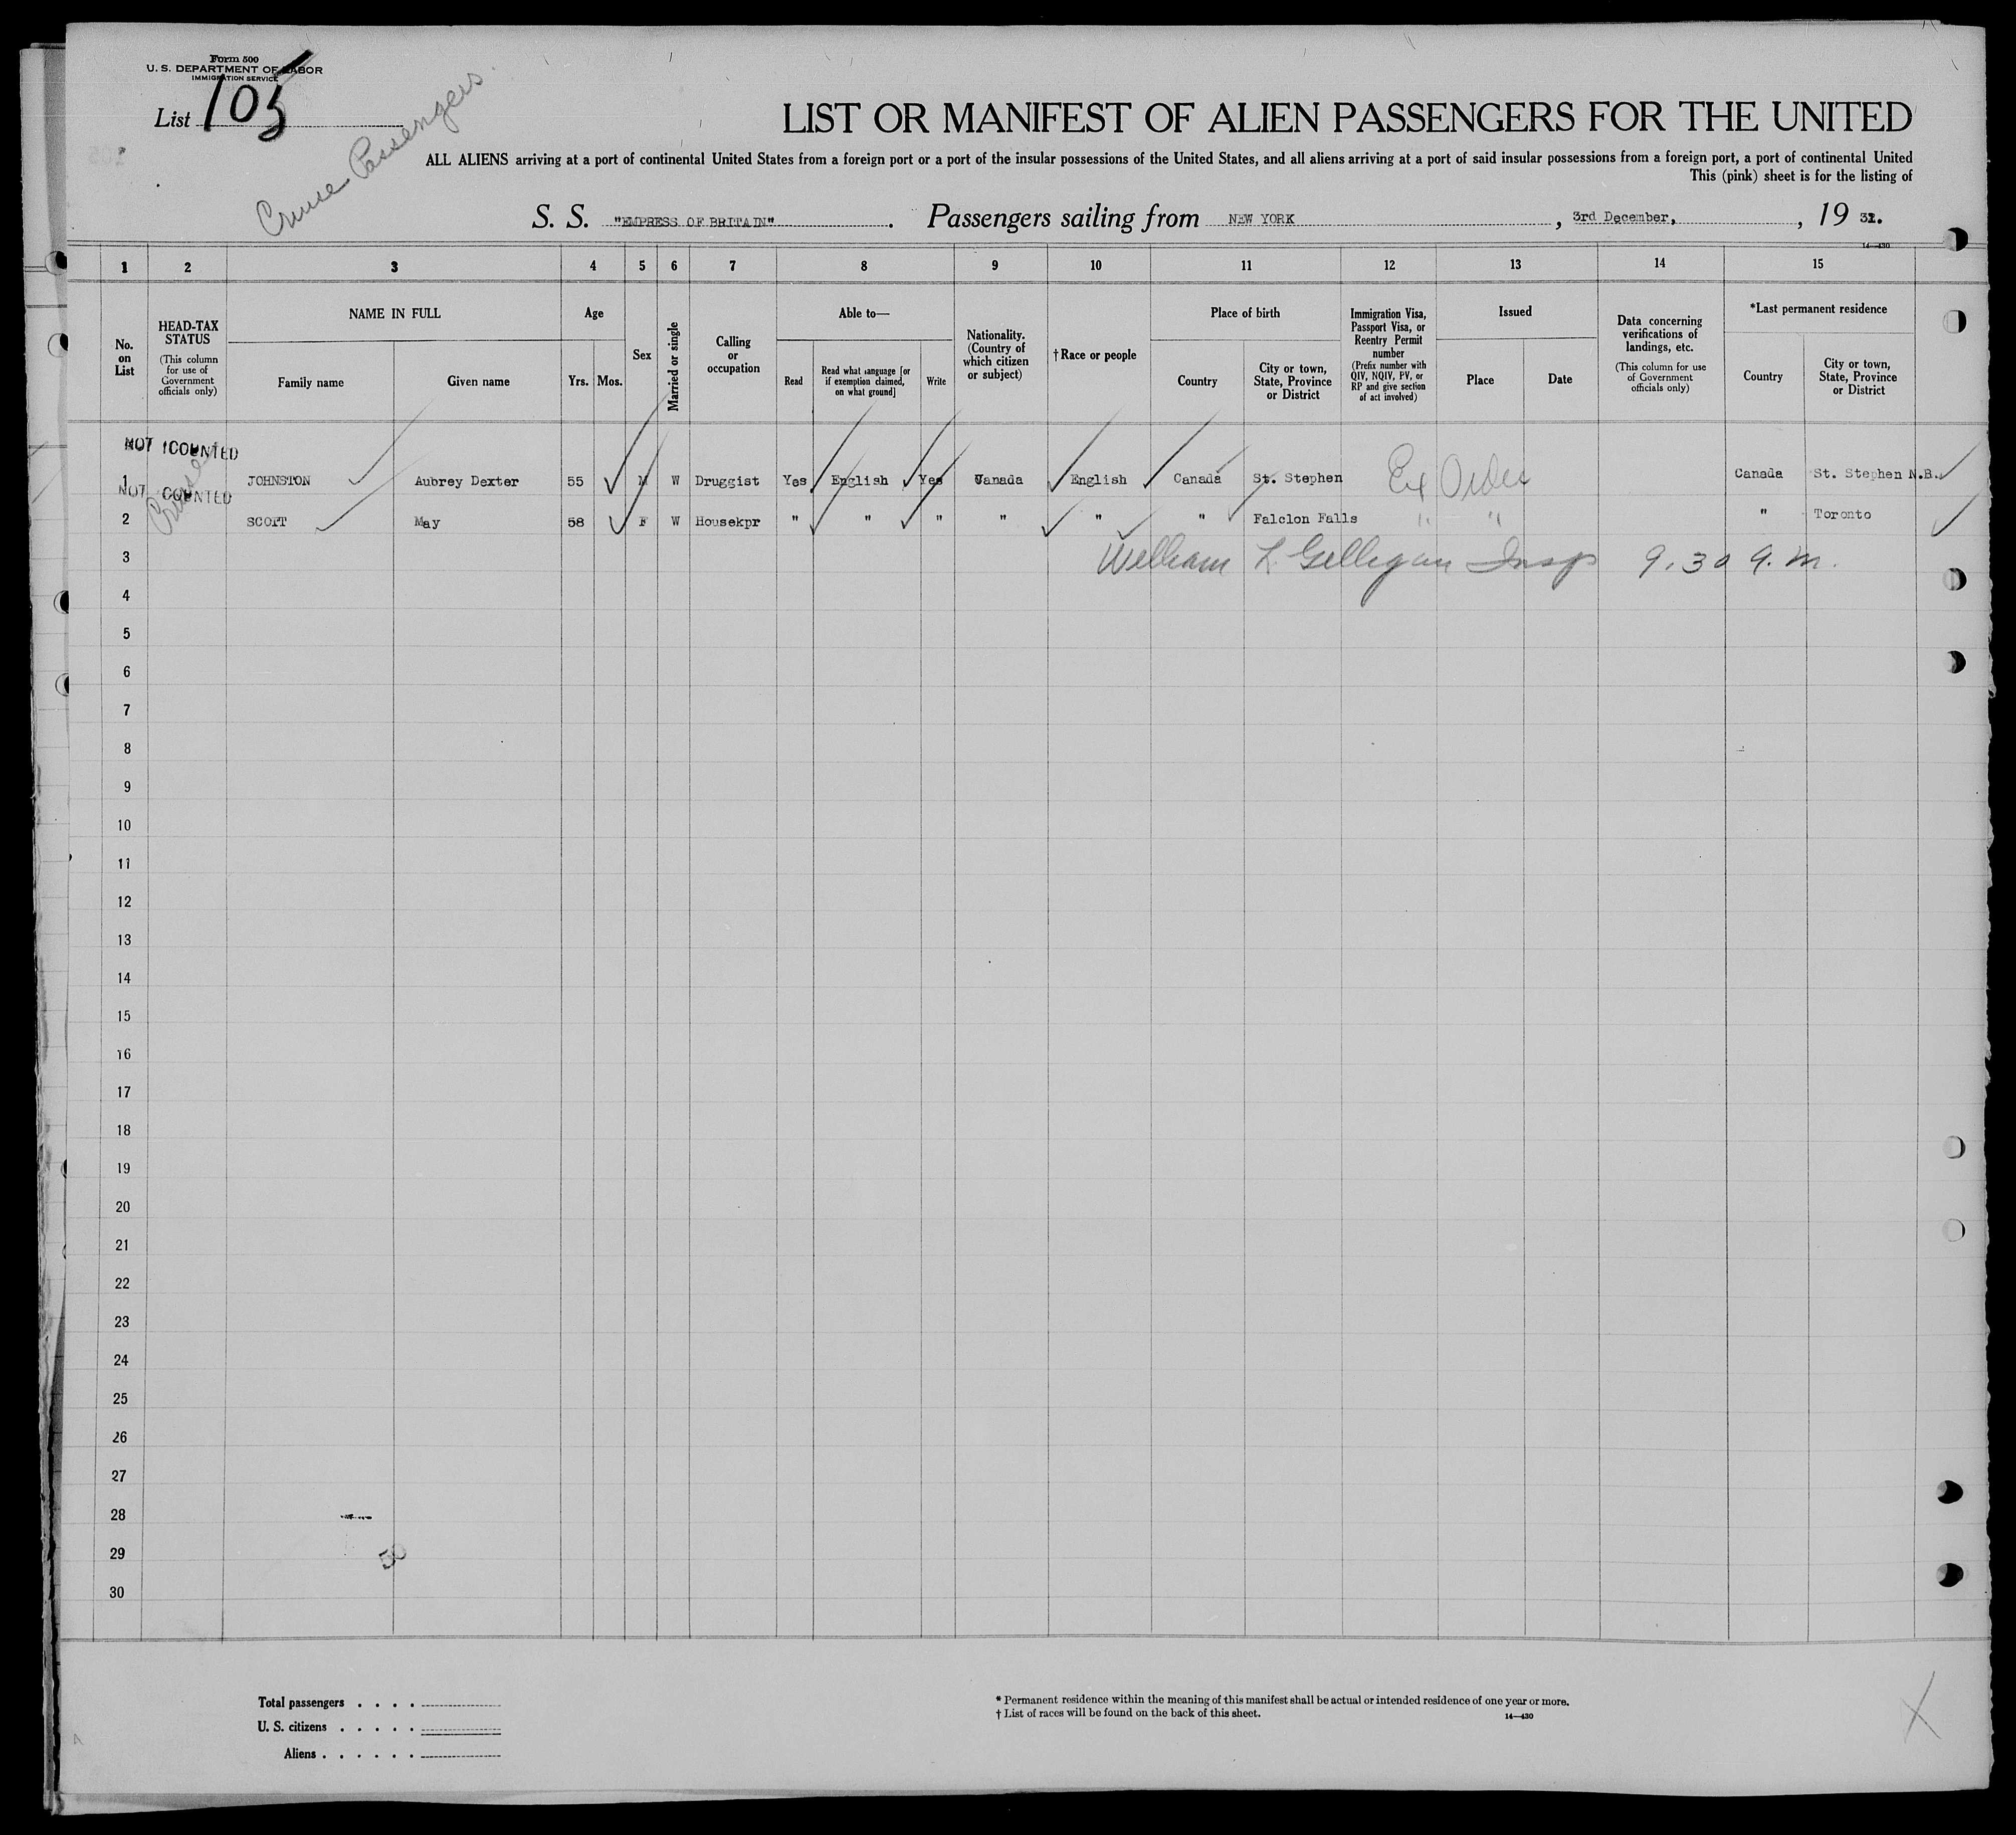 Form 500
U. S. DEPARTMENT OF LABOR
IMMIGRATION SERVICE
List 105
Cruise Passengers
LIST OR MANIFEST OF ALIEN PASSENGERS FOR THE UNITED
ALL ALIENS arriving at a port of continental United States from a foreign port or a port of the insular possessions of the United States, and all aliens arriving at a port of said insular possessions from a foreign port, a port of continental United
This (pink) sheet is for the listing of
S. S. "EMPRESS OF BRITAIN". Passengers sailing from NEW YORK, 3rd December, , 19 32.
14—430
1 2 3 4 5 6 7 8 9 10 11 12 13 14 15
No. on List
HEAD-TAX STATUS (This column for use of Government officials only)
NAME IN FULL
Family name Given name
Age
Yrs. Mos.
Sex
Married or single
Calling or occupation
Able to—
Read
Read what language [or if exemption claimed, on what ground]
Write
Nationality. (Country of which citizen or subject)
† Race or people
Place of birth
Country
City or town, State, Province or District
Immigration Visa, Passport Visa, or Reentry Permit number (Prefix number with QIV, NQIV, PV, or RP and give section of act involved)
Issued
Place Date
Data concerning verifications of landings, etc. (This column for use of Government officials only)
*Last permanent residence
Country
City or town, State, Province or District
NOT COUNTED
1 JOHNSTON Aubrey Dexter 55 M W Druggist Yes English Yes Canada English Canada St. Stephen Ex Order Canada St. Stephen N.B.
NOT COUNTED
Cruise
2 SCOTT May 58 F W Housekpr " " " " " " Falclon Falls " " " Toronto
3 William L Gilligan Insp 9.30 a.m.
4
5
6
7
8
9
10
11
12
13
14
15
16
17
18
19
20
21
22
23
24
25
26
27
28
29
50
30
Total passengers . . . .
U. S. citizens . . . . .
Aliens . . . . . .
* Permanent residence within the meaning of this manifest shall be actual or intended residence of one year or more.
† List of races will be found on the back of this sheet.
14—430